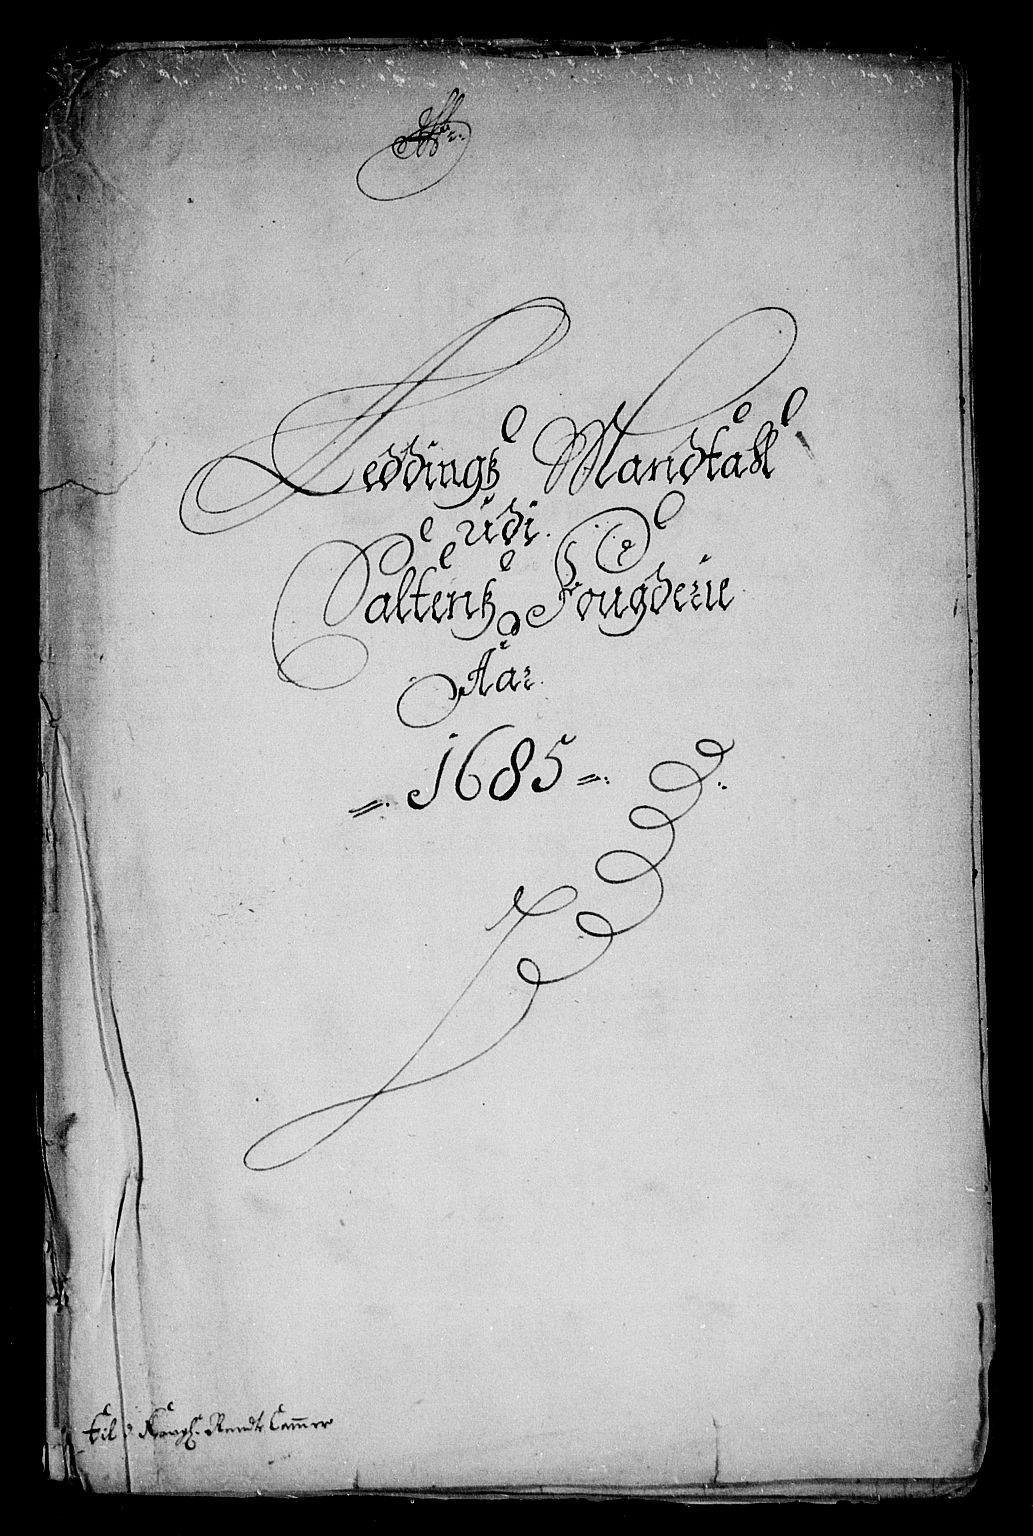 Leddingß Mandtall
udi
Saltenß Fougderie
Aar
1685
til d Kongl. Rendte Cammer